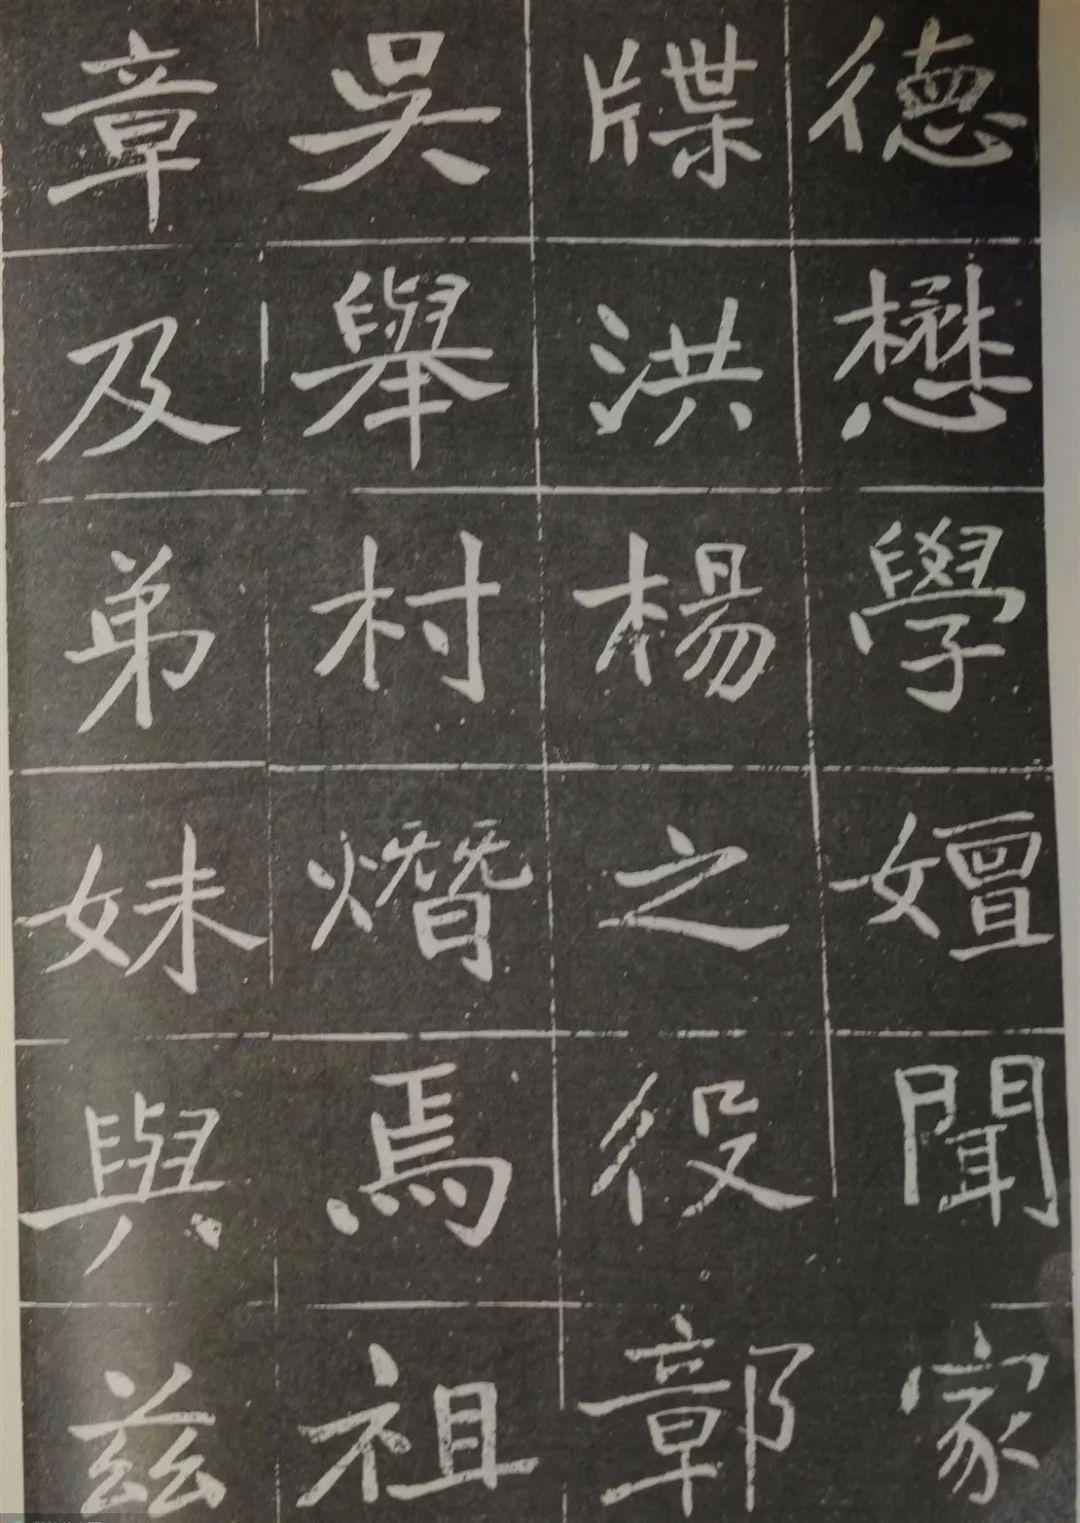 德懋學嬗聞家
牒洪楊之役鄣
吳舉村熸焉祖
章及弟妹與兹